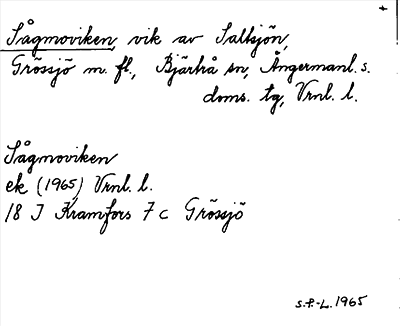 Sågmoviken, vik av Saltsjön,
Grössjö m. fl., Bjärtrå sn, Ångermanl. s.
doms. tg, Vrnl. l.
Sågmoviken
ek (1965) Vrnl. l.
18 J Kramfors 7 c Grössjö
S.P.-L. 1965